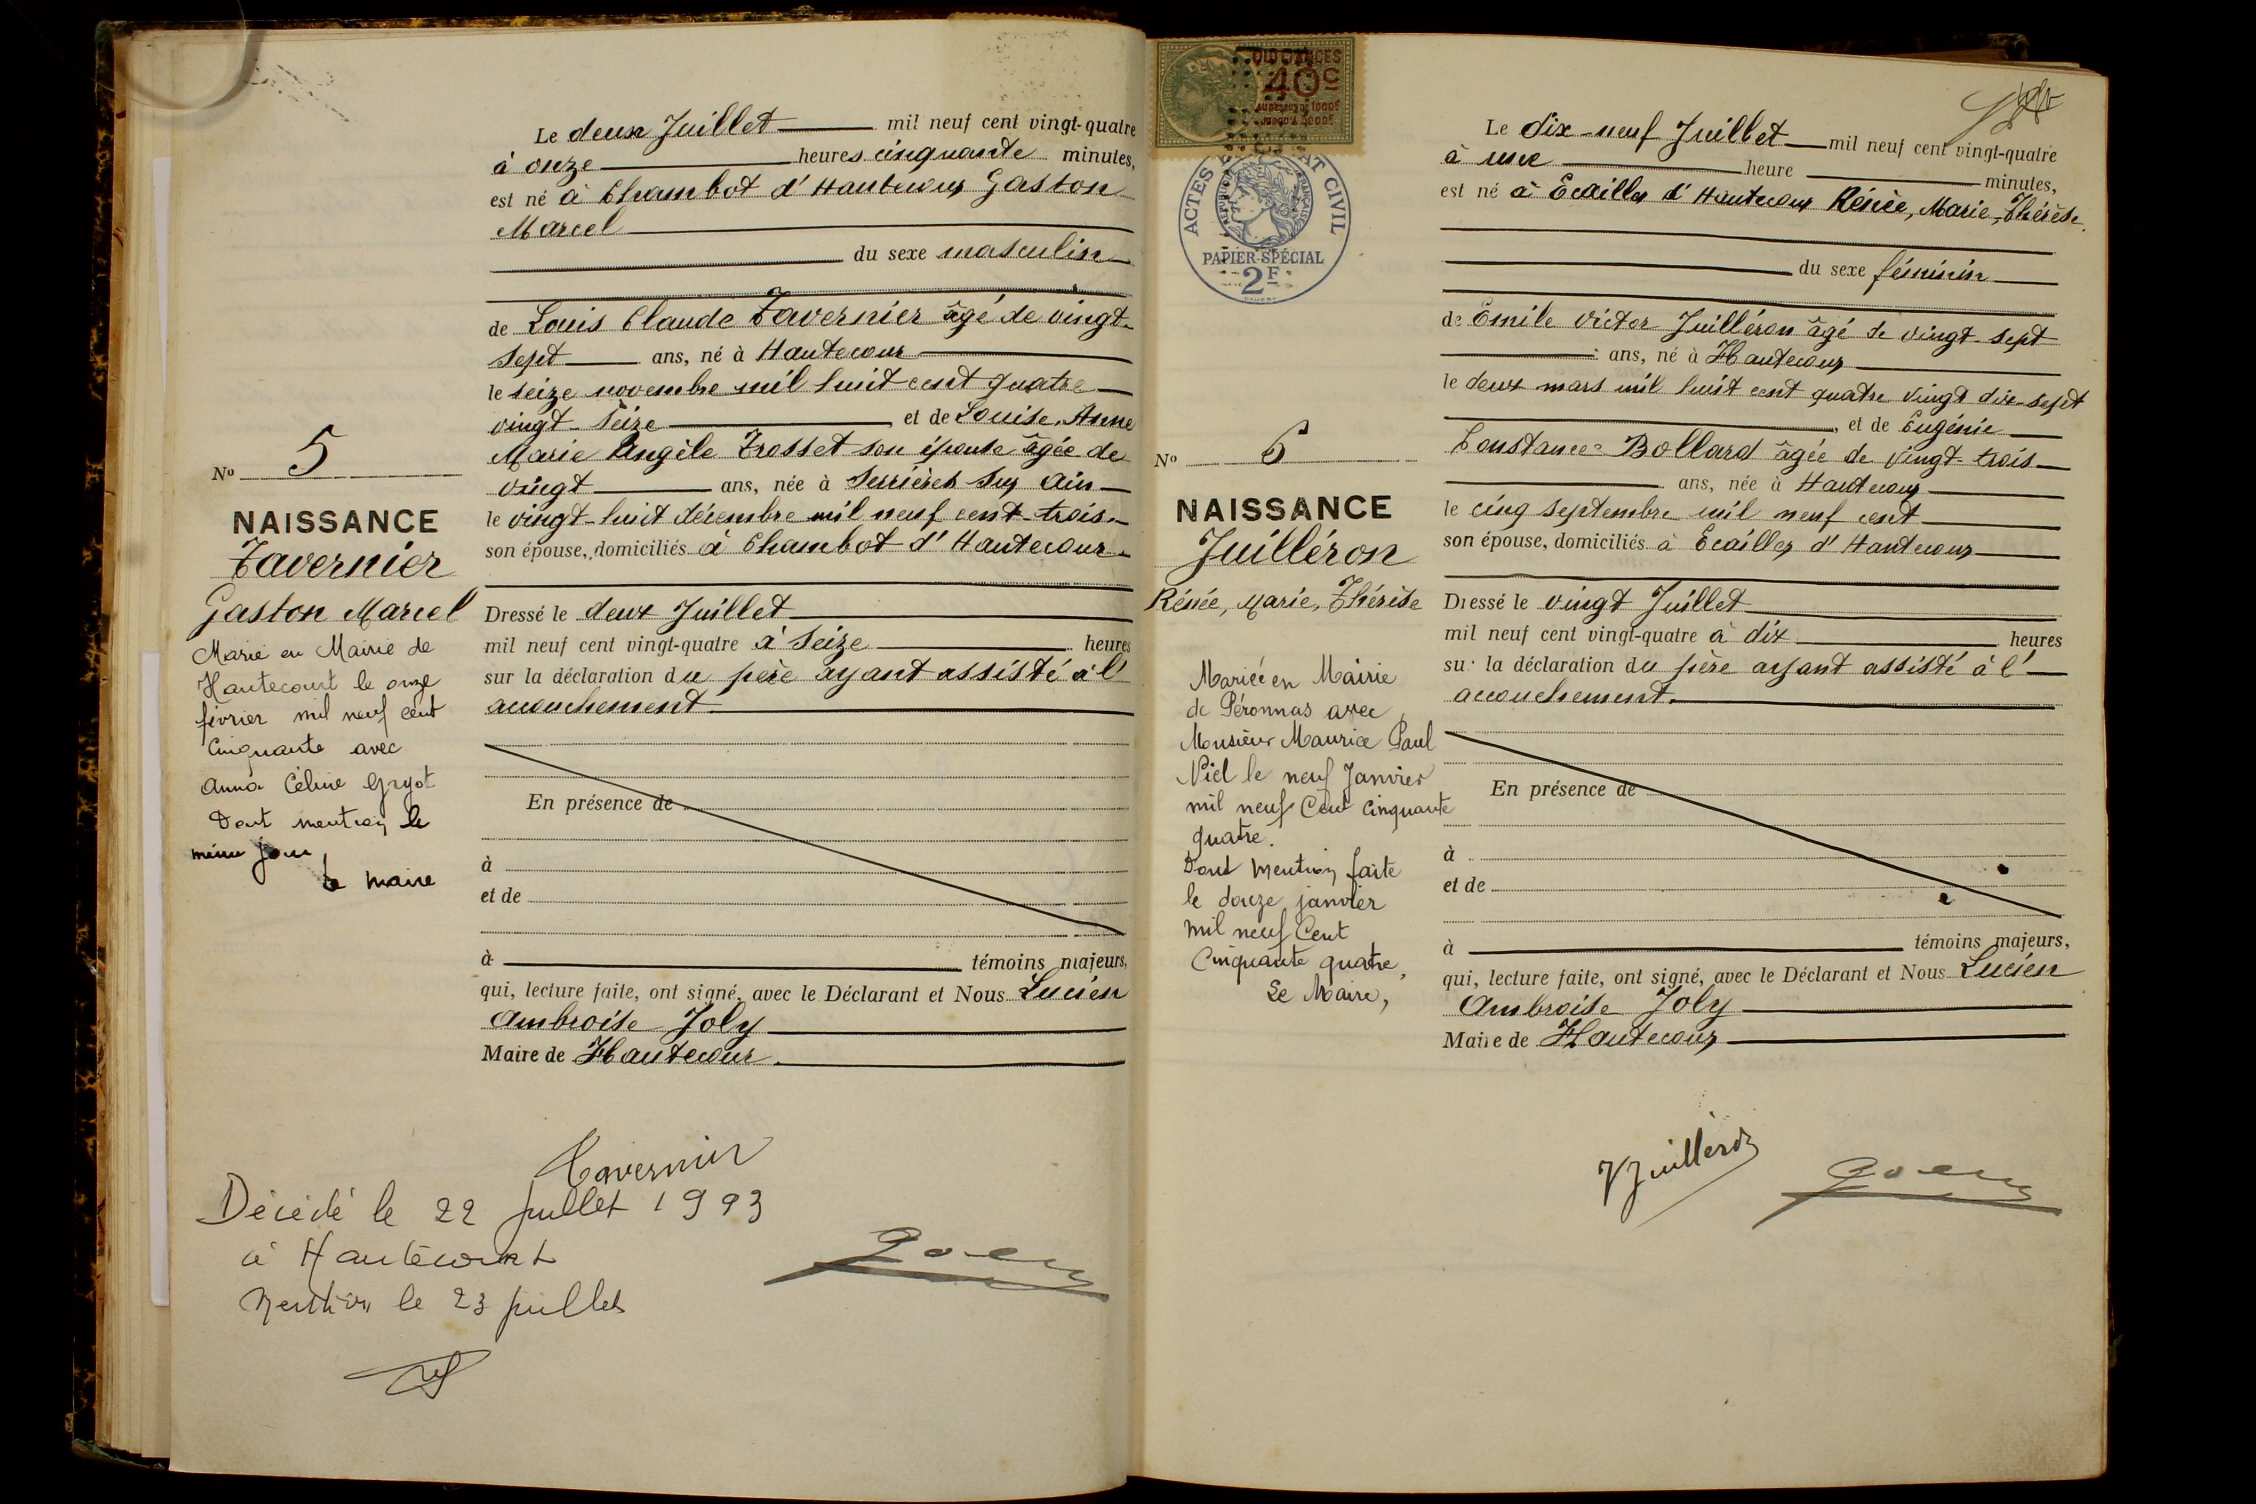 Le deux Juillet mil neuf cent vingt-quatre
à onze heures cinquante minutes,
est né à Chambot d'Hautecour Gaston
Marcel
du sexe masculin
de Louis Claude Tavernier âgé de vingt-
sept ans, né à Hautecour
le seize novembre mil huit cent quatre
vingt-seize et de Louise, Anne
Marie Angèle Trosset son épouse âgée de
vingt ans, née à Serrières sur Ain
le vingt-huit décembre mil neuf cent trois
son épouse, domiciliés à Chambot d'Hautecour
Dressé le deux Juillet
mil neuf cent vingt-quatre à seize heures
sur la déclaration du père ayant assisté à l'
accouchement
En présence de
à
et de
à témoins majeurs,
qui, lecture faite, ont signé, avec le Déclarant et Nous Lucien
Ambroise Joly
Maire de Hautecour
No 5
NAISSANCE
Tavernier
Gaston Marcel
Marié en Mairie de
Hautecourt le onze
février mil neuf cent
cinquante avec
Anna Céline Gryot
Dont mention le
même jour
Le Maire
Tavernier
Décédé le 22 juillet 1993
à Hautecourt
Mention le 23 juillet
40c
ACTES CIVIL
PAPIER-SPÉCIAL
2F
Le dix-neuf Juillet mil neuf cent vingt-quatre
à une heure minutes,
est né à Ecailles d'Hautecour Rénée, Marie, Thérèse
du sexe féminin
de Emile Victor Juilléron âgé de vingt-sept
ans, né à Hautecour
le deux mars mil huit cent quatre vingt dix-sept
, et de Eugénie
Constance Bollard âgée de vingt-trois
ans, née à Hautecour
le cinq septembre mil neuf cent
son épouse, domiciliés à Ecailles d'Hautecour
Dressé le vingt Juillet
mil neuf cent vingt-quatre à dix heures
sur la déclaration du père ayant assisté à l'
accouchement.
En présence de
à
et de
à témoins majeurs,
qui, lecture faite, ont signé, avec le Déclarant et Nous Lucien
Ambroise Joly
Maire de Hautecour
No 6
NAISSANCE
Juilléron
Rénée, Marie, Thérèse
Mariée en Mairie
de Péronnas avec
Monsieur Maurice Paul
Niel le neuf Janvier
mil neuf Cent cinquante
quatre.
Dont mention faite
le douze janvier
mil neuf Cent
Cinquante quatre,
Le Maire,
VJuilléron